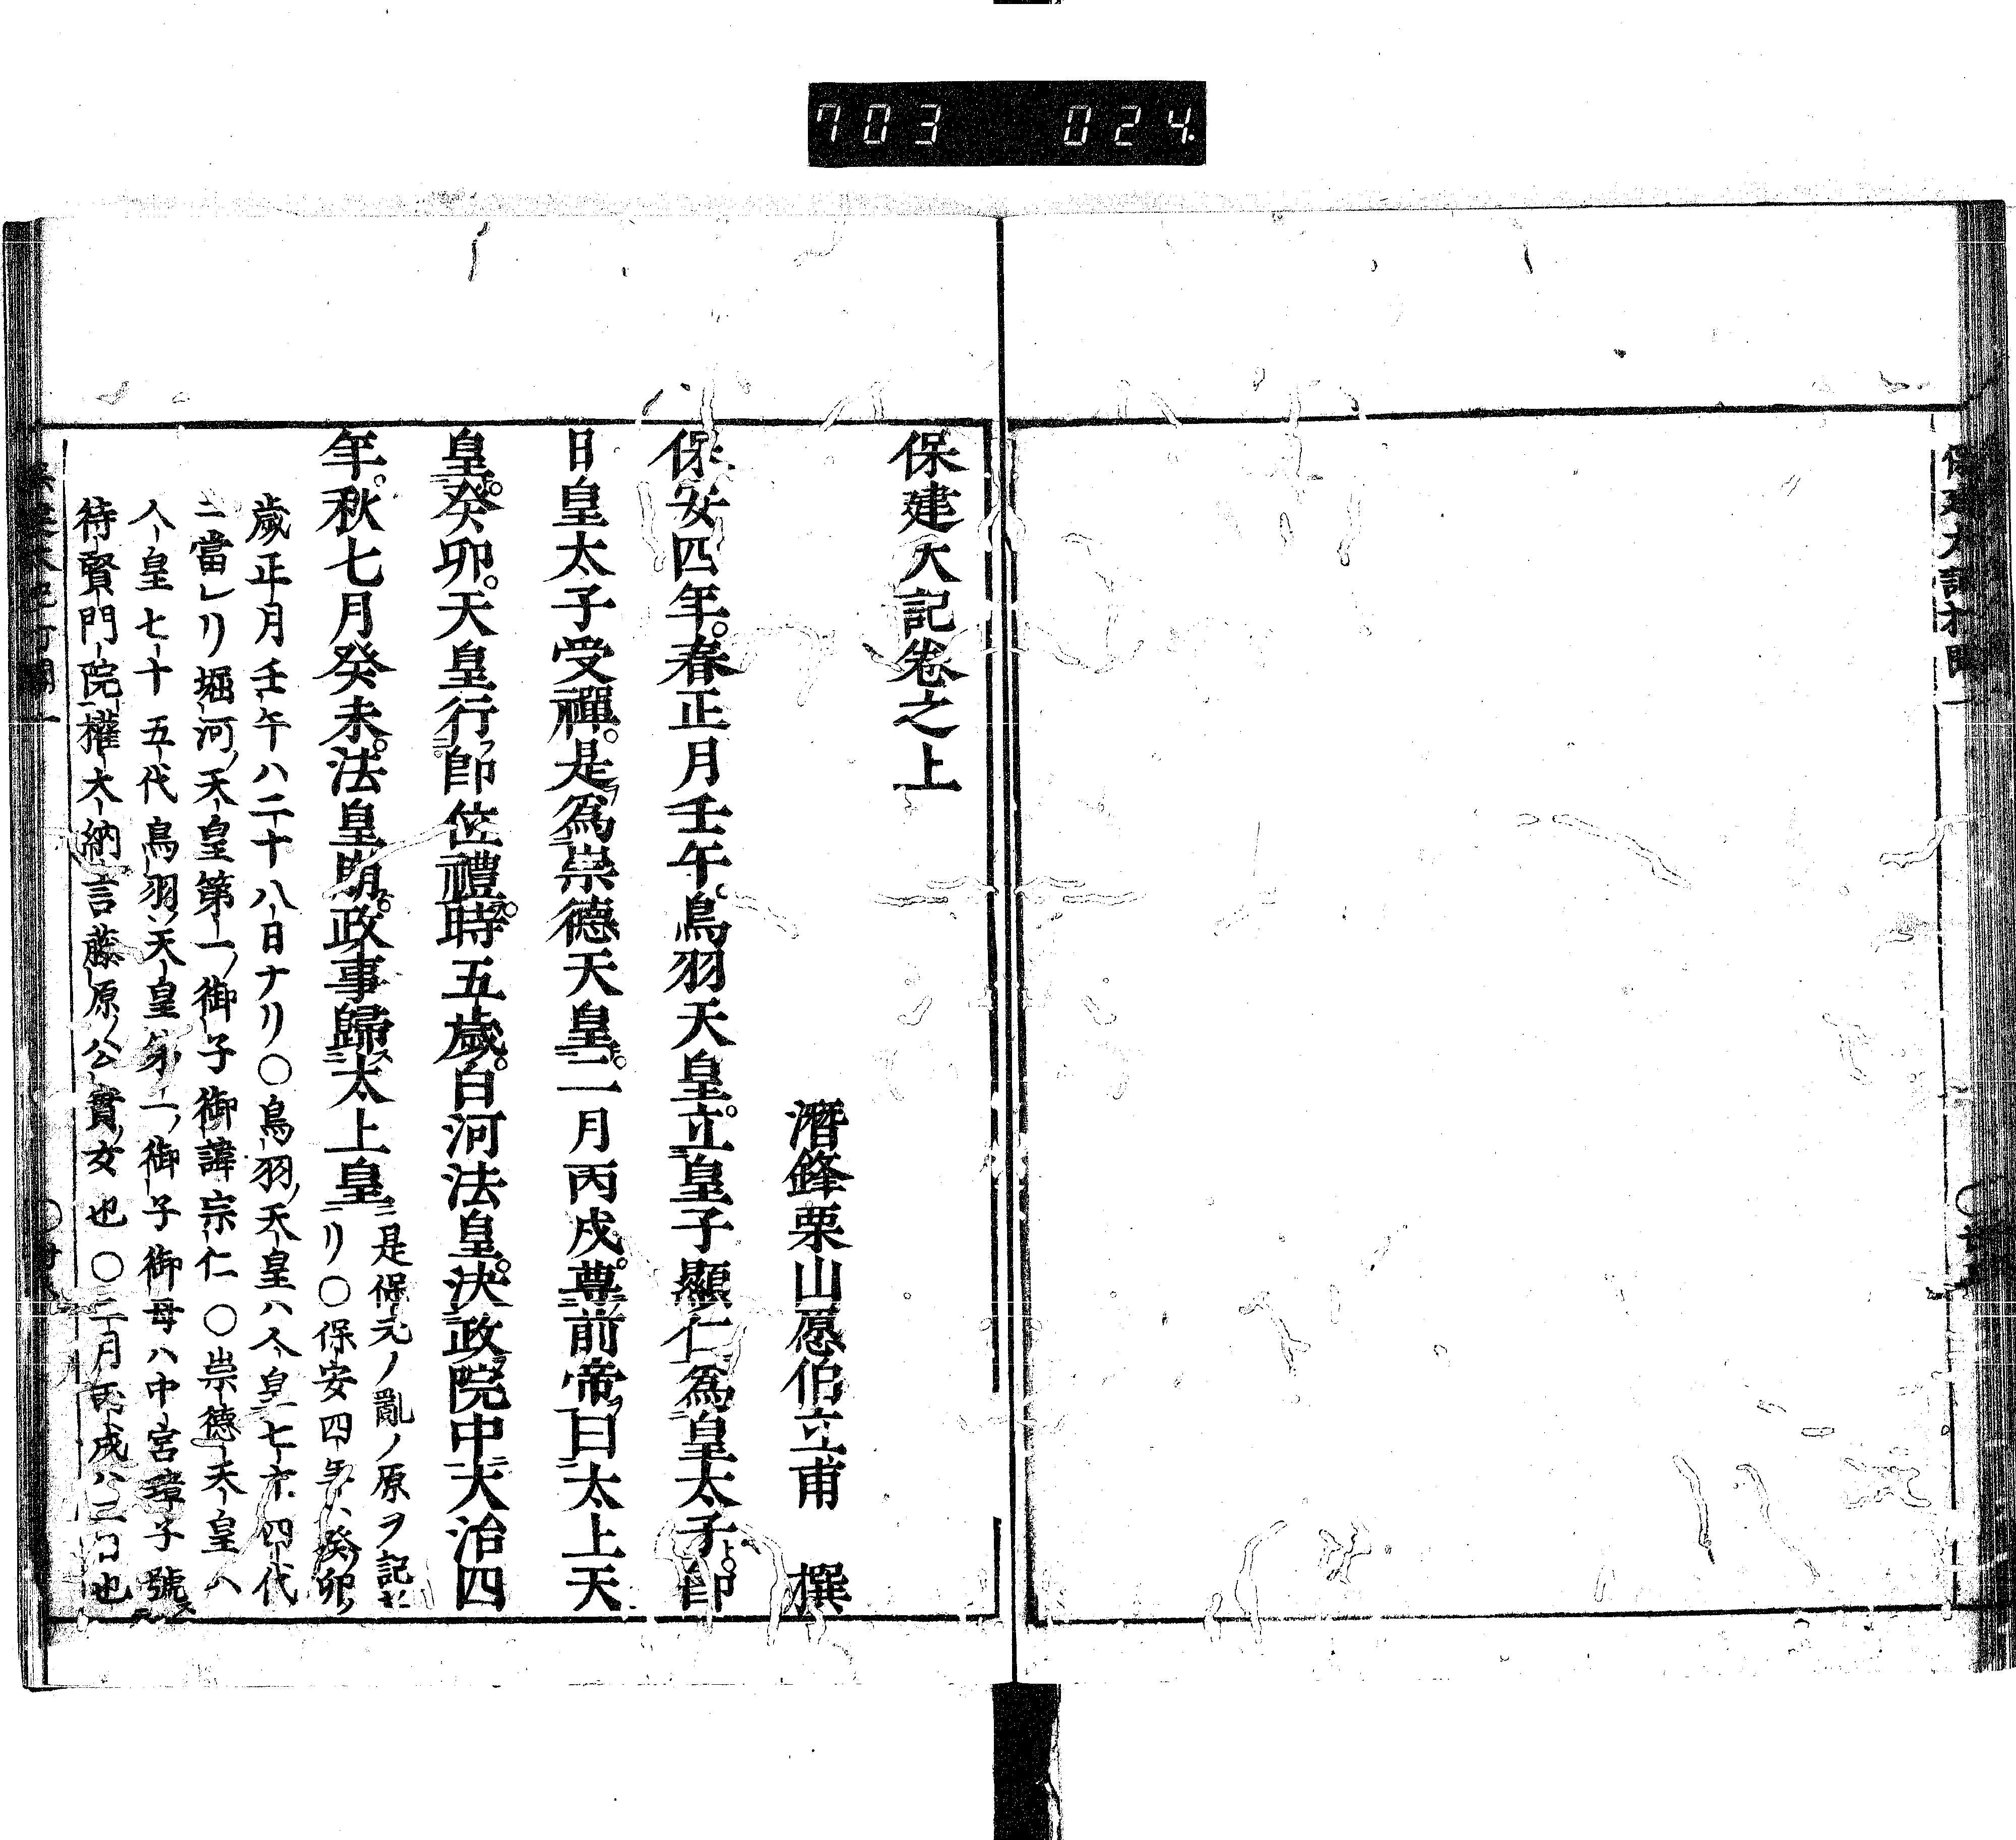 703 024
保建大記卷之上
潛鋒栗山愿伯立甫 撰
保安四年。春正月壬午。鳥羽天皇。立皇子顯仁爲皇太子。卽
日皇太子受禪。是爲崇德天皇。二月丙戌。尊前帝曰太上天
皇。癸卯。天皇行卽位禮。時五歲。白河法皇。決政院中大治四
年。秋七月癸未。法皇崩。政事歸太上皇
是保元ノ亂ノ原ヲ記セ
リ〇保安四年ハ癸卯ノ
歲正月壬午ハ二十八日ナリ〇鳥羽ノ天皇ハ人皇七十四代
ニ當レリ堀河ノ天皇第一ノ御子御諱宗仁〇崇德天皇ハ
人皇七十五代鳥羽ノ天皇第一ノ御子御母ハ中宮璋子號
待賢門院權大納言藤原ノ公實ノ女也〇二月丙戌ハ二日也